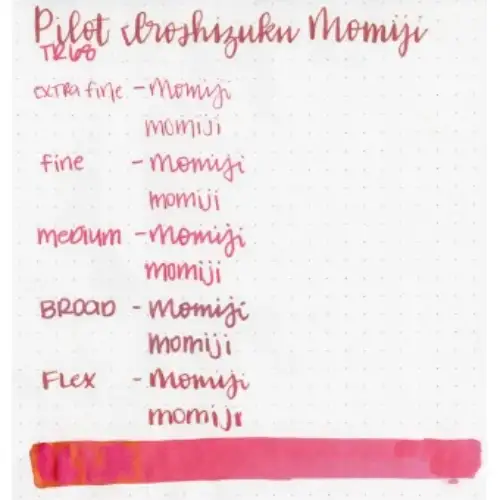 Pilot iroshizuku Momiji
TR68
extra fine - Momiji
momiji
fine - Momiji
momiji
medium - Momiji
momiji
BROAD - Momiji
momiji
Flex - Momiji
momiji